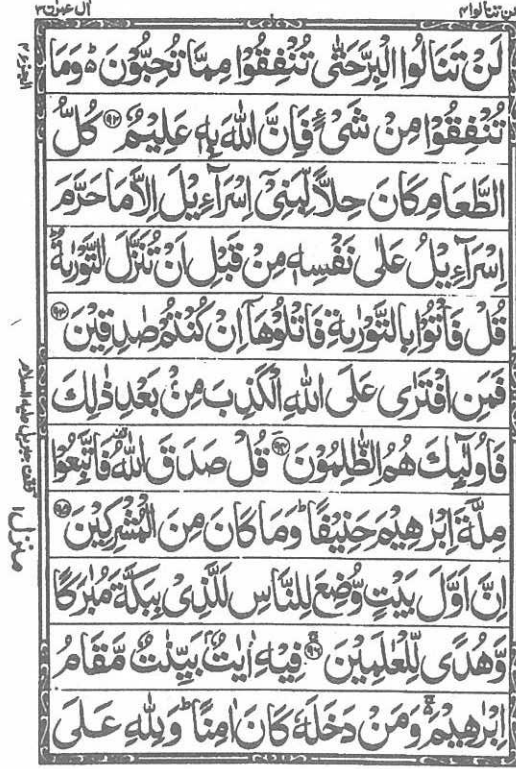 لن تنالوا ٤
ال عمرٰن ٣
لَنْ تَنَالُوا الْبِرَّ حَتّٰى تُنْفِقُوْا مِمَّا تُحِبُّوْنَ ؕ وَمَا
تُنْفِقُوْا مِنْ شَىْءٍ فَاِنَّ اللّٰهَ بِهٖ عَلِيْمٌ ﴿۹۲﴾ كُلُّ
الطَّعَامِ كَانَ حِلًّا لِّبَنِىْٓ اِسْرَآءِيْلَ اِلَّا مَا حَرَّمَ
اِسْرَآءِيْلُ عَلٰى نَفْسِهٖ مِنْ قَبْلِ اَنْ تُنَزَّلَ التَّوْرٰىةُ ؕ
قُلْ فَاْتُوْا بِالتَّوْرٰىةِ فَاتْلُوْهَاۤ اِنْ كُنْتُمْ صٰدِقِيْنَ ﴿۹۳﴾
فَمَنِ افْتَرٰى عَلَى اللّٰهِ الْكَذِبَ مِنْۢ بَعْدِ ذٰلِكَ
فَاُولٰٓئِكَ هُمُ الظّٰلِمُوْنَ ﴿۹۴﴾ قُلْ صَدَقَ اللّٰهُ فَاتَّبِعُوْا
مِلَّةَ اِبْرٰهِيْمَ حَنِيْفًا ؕ وَمَا كَانَ مِنَ الْمُشْرِكِيْنَ ﴿۹۵﴾
اِنَّ اَوَّلَ بَيْتٍ وُّضِعَ لِلنَّاسِ لَلَّذِىْ بِبَكَّةَ مُبٰرَكًا
وَّهُدًى لِّلْعٰلَمِيْنَ ﴿۹۶﴾ فِيْهِ اٰيٰتٌۢ بَيِّنٰتٌ مَّقَامُ
اِبْرٰهِيْمَ ۚ وَمَنْ دَخَلَهٗ كَانَ اٰمِنًا ؕ وَلِلّٰهِ عَلَى
الجزء ٤
وقف جبريل عليه السلام
منزل ١